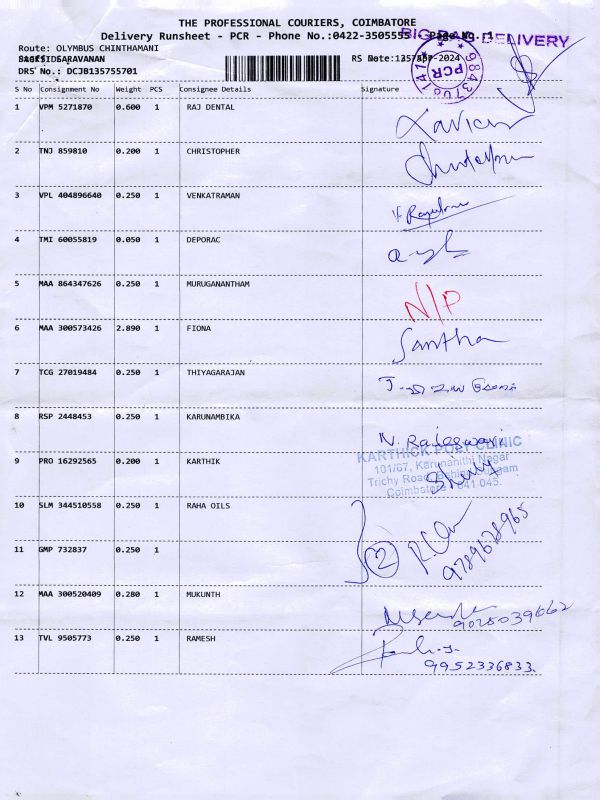 THE PROFESSIONAL COURIERS, COIMBATORE
Delivery Runsheet - PCR - Phone No.:0422-3505555 - Page No. 1
BIG BAG DELIVERY
Route: OLYMBUS CHINTHAMANI
SARAVANAN
RS Date: -2024
DRS No.: DCJB135755701
PCR
S No Consignment No Weight PCS Consignee Details Signature
1 VPM 5271870 0.600 1 RAJ DENTAL
2 TNJ 859810 0.200 1 CHRISTOPHER
3 VPL 404896640 0.250 1 VENKATRAMAN
4 TMI 60055819 0.050 1 DEPORAC
5 MAA 864347626 0.250 1 MURUGANANTHAM N/P
6 MAA 300573426 2.890 1 FIONA Santha
7 TCG 27019484 0.250 1 THIYAGARAJAN
8 RSP 2448453 0.250 1 KARUNAMBIKA N. Rajeswari
KARTHICK POLY CLINIC
9 PRO 16292565 0.200 1 KARTHIK
101/67, Karunanithi Nagar
Trichy Road,
Coimbatore - 641 045.
10 SLM 344510558 0.250 1 RAHA OILS
11 GMP 732837 0.250 1 2 9789678965
12 MAA 300520409 0.280 1 MUKUNTH
13 TVL 9505773 0.250 1 RAMESH
9952336833